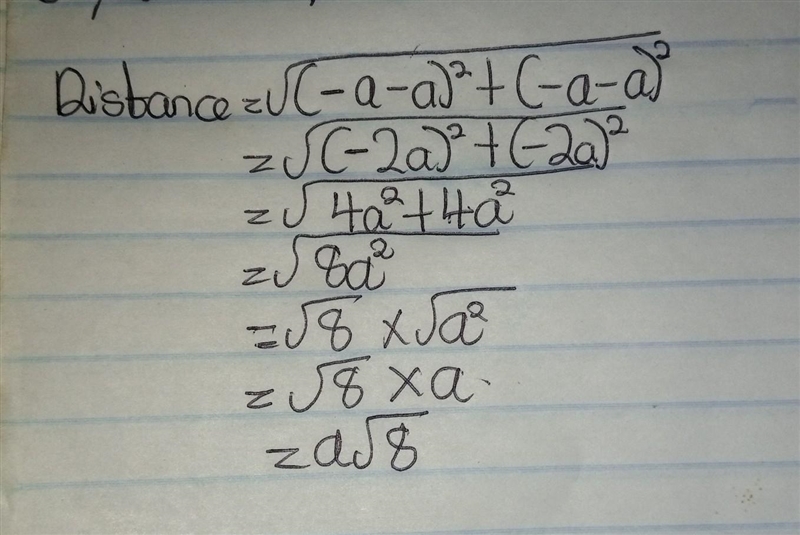 Distance = √(-a-a)² + (-a-a)²
= √(-2a)² + (-2a)²
= √4a² + 4a²
= √8a²
= √8 × √a²
= √8 × a
= a√8